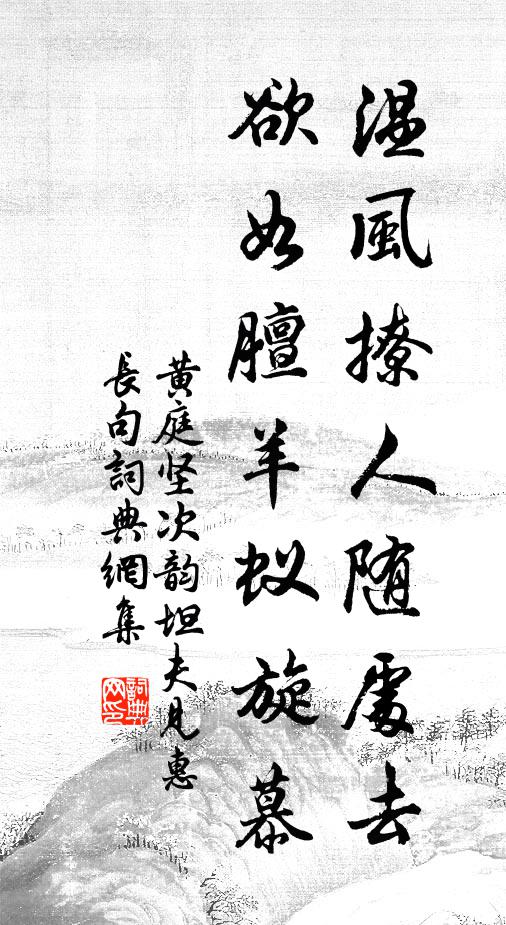 温風撩人随處去
欲如膻羊蚁旋慕
黄庭坚次韵坦夫見惠
長句詞典網集
詞典网印